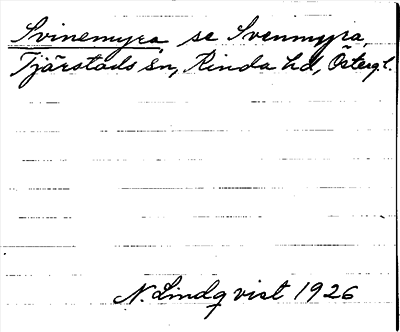 Svinemyra, se Svenmyra,
Tjärstads sn, Kinda hd, Östergl.
N. Lindqvist 1926